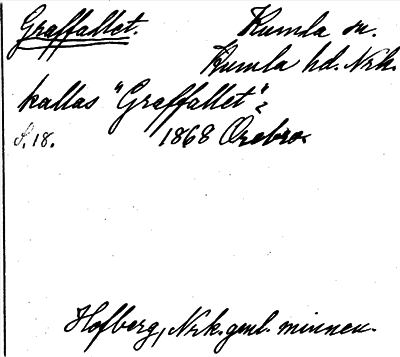 Graffallet. Kumla sn.
Kumla hd. Nrk.
kallas "Graffallet",
S. 18. 1868 Örebro
Hofberg, Nrk. gml. minnen.